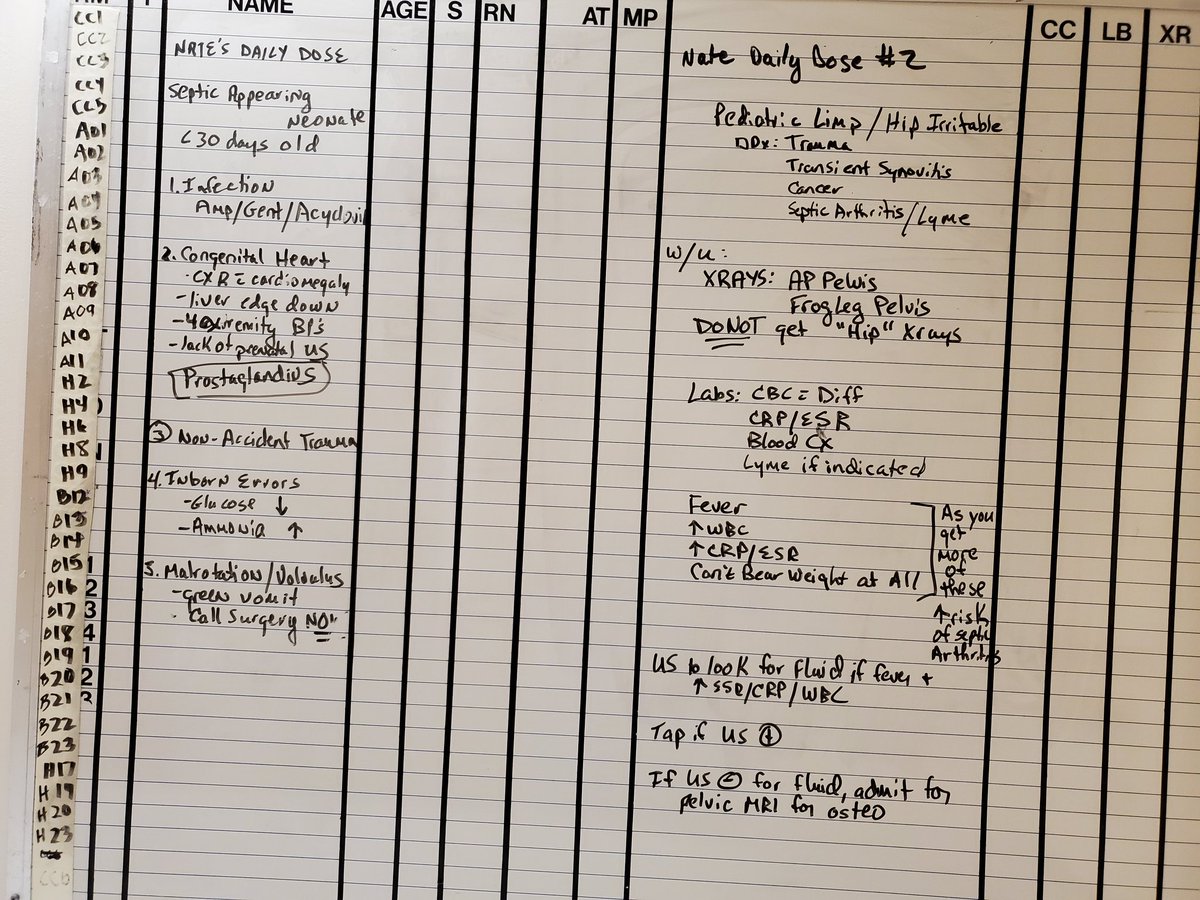 NAME
AGE
S
RN
AT
MP
CC
LB
XR
CC1
CC2
CC3
CC4
CC5
A01
A02
A03
A04
A05
A06
A07
A08
A09
A10
A11
H2
H4
H6
H8
H9
B12
B13
B14
B15 1
B16 2
B17 3
B18 4
B19 1
B20 2
B21
B22
B23
H17
H19
H20
H23
CC6
NATE'S DAILY DOSE
Septic Appearing
Neonate
<30 days old
1. Infection
Amp/Gent/Acyclovir
2. Congenital Heart
· CXR = cardiomegaly
- liver edge down
- 4 extremity BP's
- lack of prenatal US
Prostaglandins
3 Non-Accident Trauma
4. Inborn Errors
- Glucose ↓
- Ammonia ↑
5. Malrotation/Volvulus
- green vomit
· Call Surgery NOW
Nate Daily Dose #2
Pediatric Limp/Hip Irritable
DDx: Trauma
Transient Synovitis
Cancer
Septic Arthritis/Lyme
W/u:
XRAYS: AP Pelvis
Frog Leg Pelvis
DO NOT get "Hip" Xrays
Labs: CBC = Diff
CRP/ESR
Blood Cx
Lyme if indicated
Fever
↑WBC
↑CRP/ESR
Can't Bear Weight at All
As you
get
more
of
these
↑risk
of septic
Arthritis
US to look for fluid if fever +
↑SSR/CRP/WBC
Tap if US ⊕
If US ⊖ for fluid, admit for
pelvic MRI for osteo